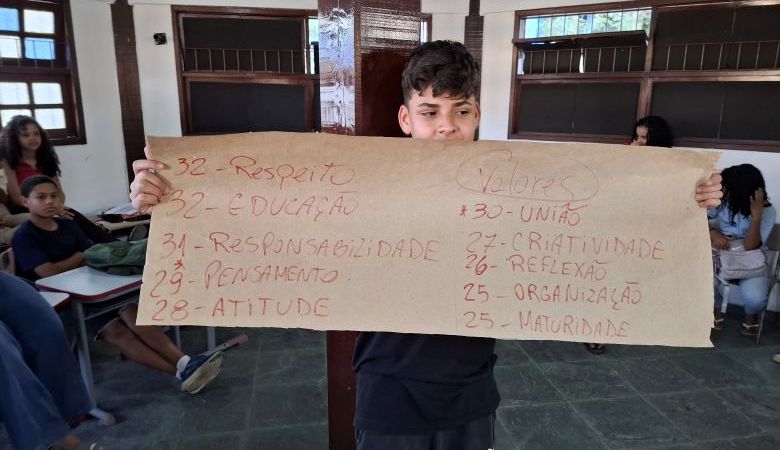 Valores
32 - Respeito
32 - EDUCAÇÃO
31 - RESPONSABILIDADE
*29 - PENSAMENTO
28 - ATITUDE
*30 - UNIÃO
27 - CRIATIVIDADE
26 - REFLEXÃO
25 - ORGANIZAÇÃO
25 - MATURIDADE